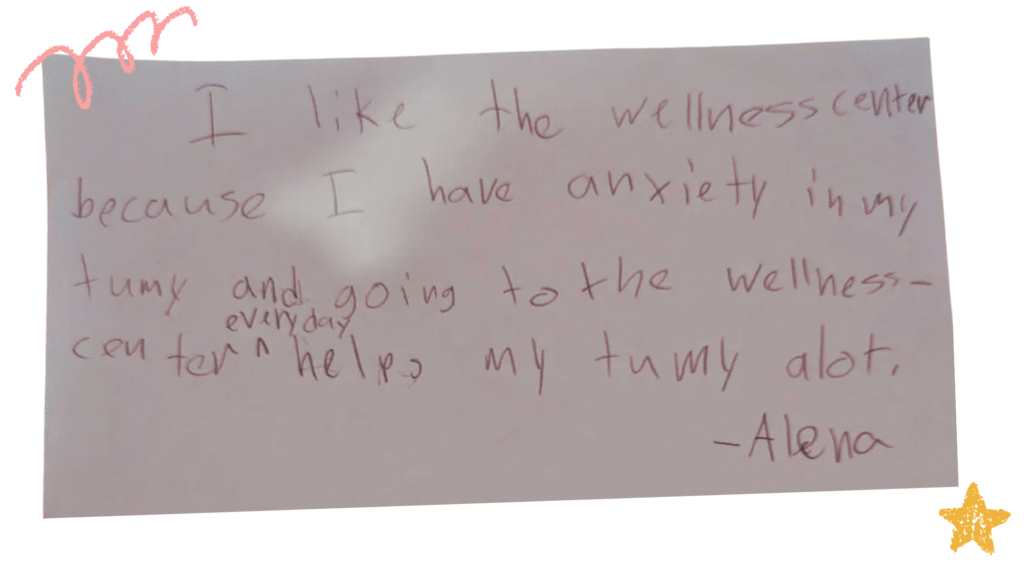 I like the wellness center
because I have anxiety in my
tumy and going to the wellness-
everyday
center ^ helps my tumy alot.
-Alena